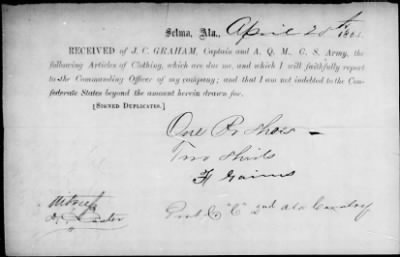 Selma, Ala., April 20th 186
RECEIVED of J. C. GRAHAM, Captain and A. Q. M., C. S. Army, the
following Articles of Clothing, which are due me, and which I will faithfully report
to the Commanding Officer of my company; and that I am not indebted to the Con-
federate States beyond the amount herein drawn for.
[SIGNED DUPLICATES.]
One Pr Shoes
Two Shirts
Gaines
Witness
Co "C" 2nd Ala Cavalry